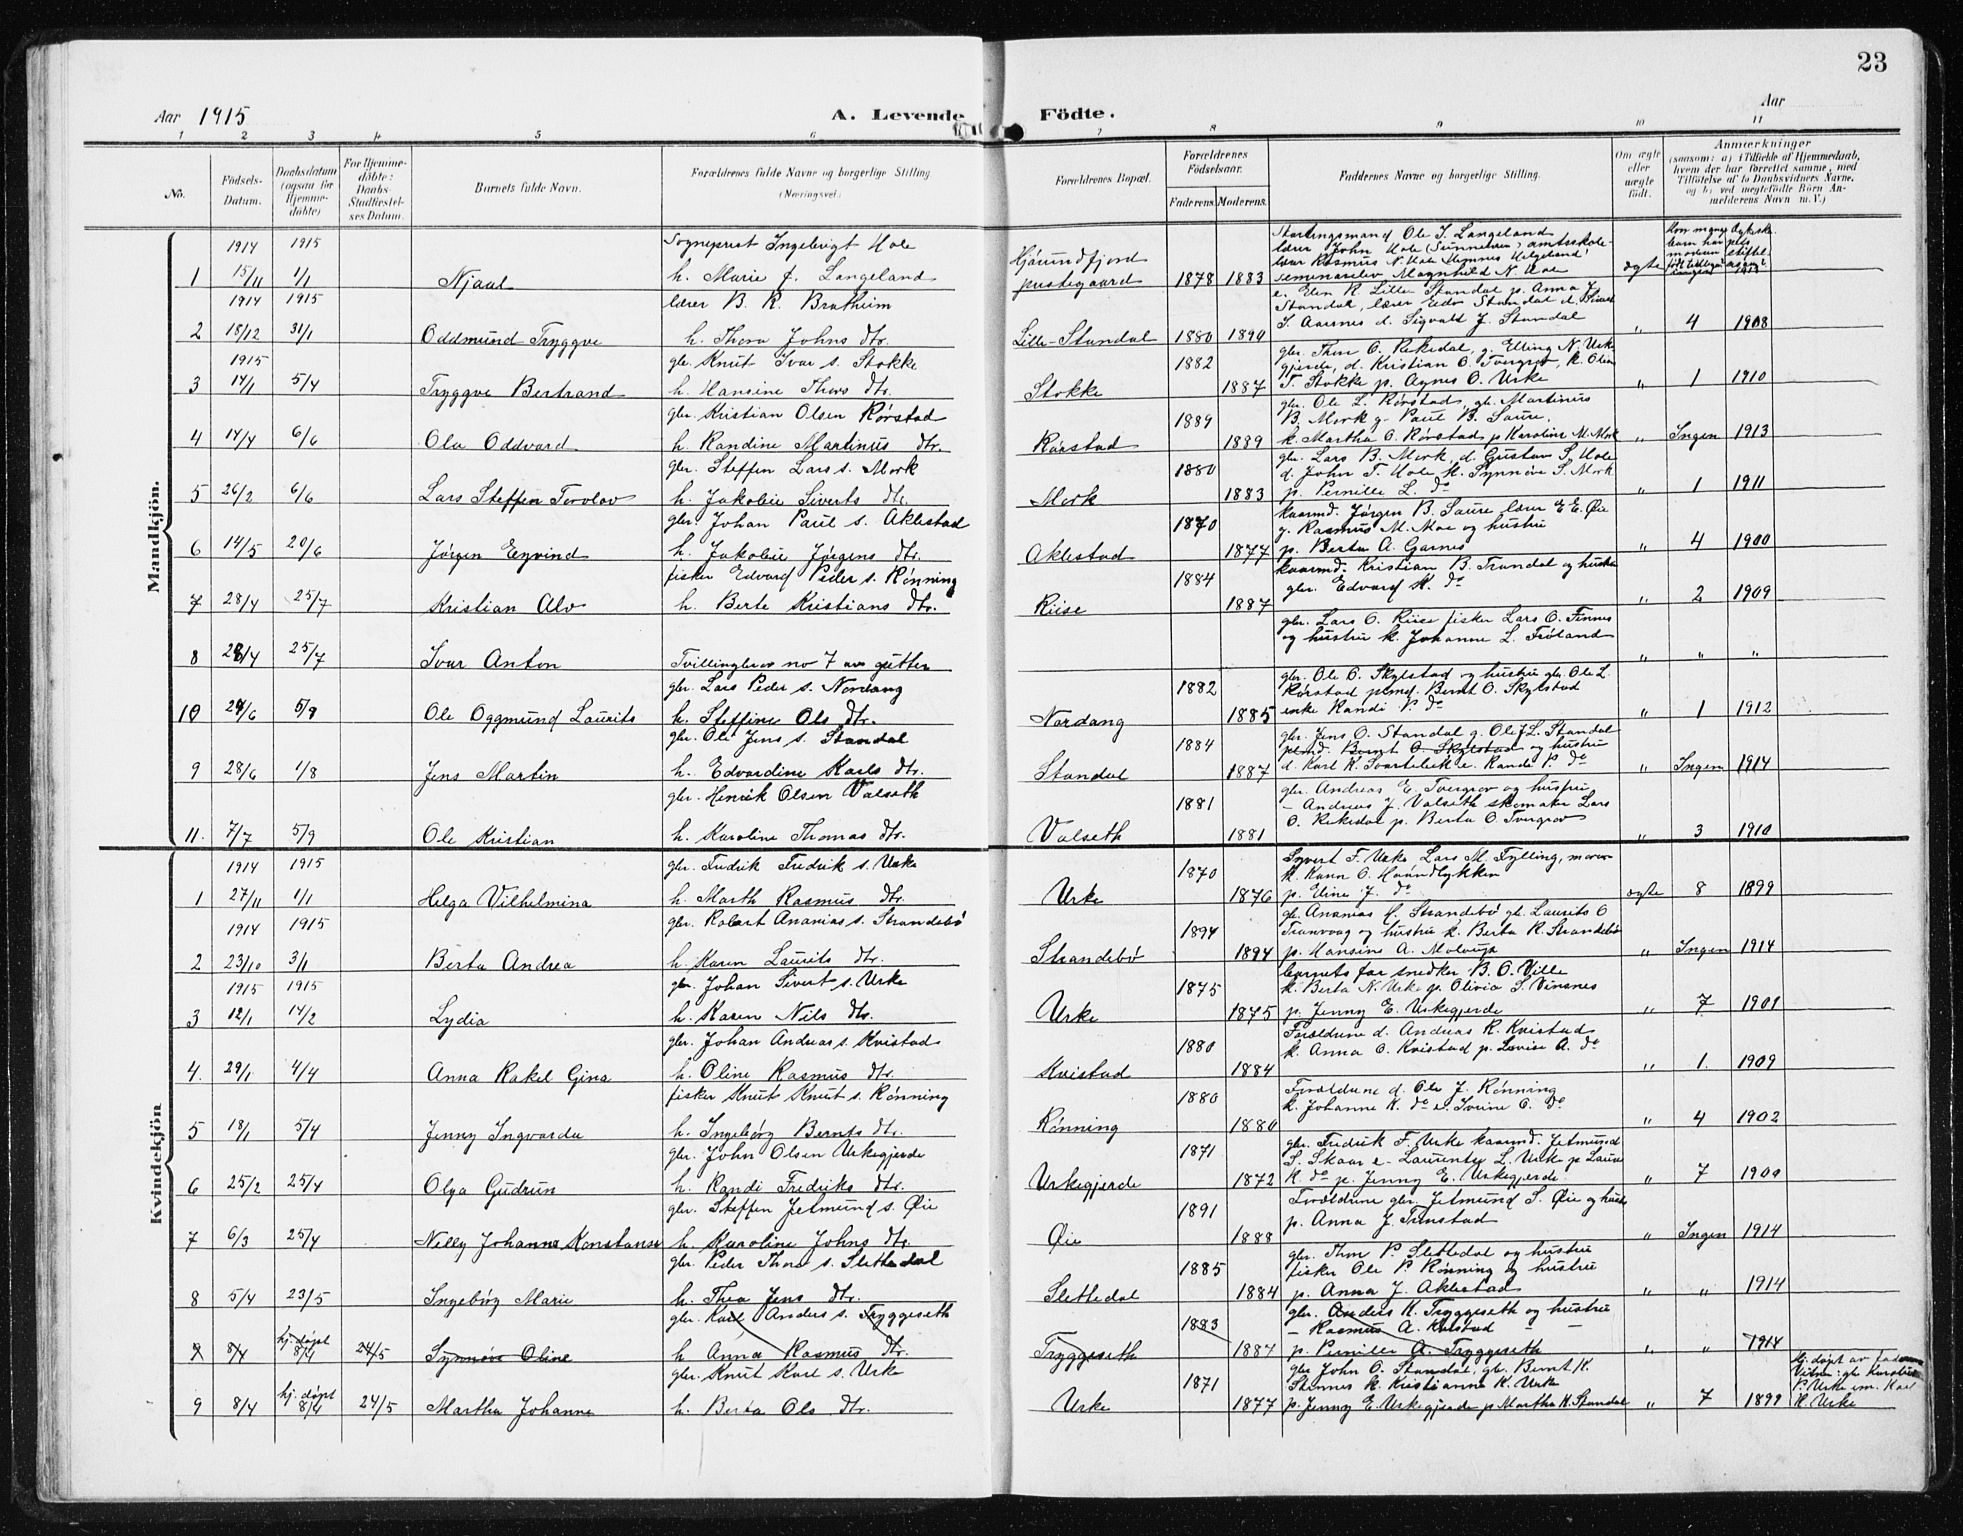 23
Aar 1915
A. Levende Födte.
Aar
1 2 3 4 5 6 7 8 9 10 11
No.
Födsels-Datum.
Daabsdatum (ogsaa for Hjemmedöbte)
For Hjemmedöbte: Daabs-Stadfæstelses Datum.
Barnets fulde Navn.
Forældrenes fulde Navne og borgerlige Stilling. (Næringsvei.)
Forældrenes Bopæl.
Forældrenes Födselsaar.
Faderens. Moderens.
Faddernes Navne og borgerlige Stilling.
Om ægte eller uægte födt.
Anmærkninger
(saasom: a) i Tilfælde af Hjemmedaab, hvem der har forrettet samme, med Tilföielse af to Daabsvidners Navne, og b) ved uægtefödte Börn Anmelderens Navn m. V.)
Mandkjön.
1914 1915 Sogneprest Ingebrigt Hole
1 15/11 1/1 Njaal h. Marie f. Langeland Hjørundfjord prestegaard 1878 1883 ægte
Stortingsmand Ole I. Langeland
1914 1915 lærer B. R. Bratheim
2 18/12 31/1 Oddmund Tryggve h. Thora Johns dtr. Lille-Standal 1880 1890 " 4 1908
S. Aarsnes d. Sigvald J. Standal
1915 gbr. Knut Ivar s. Stokke 1882
3 14/1 5/4 Tryggve Bertrand h. Hansine Thors dtr. Stokke 1887 " 1 1910
T. Stokke p. Agnes O. Urke
gbr. Kristian Olsen Rørstad 1889 gbr. Ole L. Rørstad, gb. Martinus
B. Mork g. Paul B. Saure,
4 14/4 6/6 Ola Oddvard h. Randine Martinus dtr. Rørstad 1889 k. Martha O. Rørstad p Karoline M. Mork " Ingen 1913
gbr. Steffen Lars s. Mork 1880 gbr. Lars B. Mork, d. Gustav S. Hole
5 26/2 6/6 Lars Steffen Torolov h. Jakobie Siverts dtr. Mork 1883 p. Pernille L. do " 1 1911
gbr. Johan Paul s. Aklestad 1870 kaarmd. Jørgen B. Saure lærer E E. Øie
g. Rasmus M. Moe og hustru
6 14/5 20/6 Jørgen Eyvind h. Jakobie Jørgens dtr. Aklestad 1877 p. Berta A. Garnes " 4 1900
fisker Edvard Peder s. Rønning 1884 kaarmd. Kristian B. Trandal og hustru
gbr. Edvard K. do
7 28/4 25/7 Kristian Alv h. Berte Kristians dtr. Riise 1887 " 2 1909
gbr. Lars O. Riise fisker Lars O. Finnes
og hustru k. Johanne L. Frøland
8 28/4 25/7 Ivar Anton Tvillingbror no 7 av gutter " " "
gbr. Lars Peder s. Nordang 1882 gbr. Ole O. Skylstad og hustru gb. Ole L.
Rørstad plmd. Bernt O. Skylstad
10 24/6 5/9 Ole Oggmund Laurits h. Steffine Ols dtr. Nordang 1885 enke Randi P. do " 1 1912
gbr. Ole Jens s. Standal 1884 gbr. Jens O. Standal g. Ole J L. Standal
plmd. Bernt O. Skylstad og hustru
9 28/6 1/8 Jens Martin h. Edvardine Karls dtr. Standal 1887 d. Karl K. Svartebek e. Randi P. do " Ingen 1914
gbr. Henrik Olsen Valseth 1881 gbr. Andreas E. Tvergrov og hustru
- Andreas J. Valseth skomaker Lars
11. 7/7 5/9 Ole Kristian h. Karoline Thomas dtr. Valseth 1881 O. Rekedal p. Berta O Tvergrov " 3 1910
Kvindekjön
1914 1915 gbr. Fredrik Fredrik s. Urke 1870 Syvert F. Urke, Lars M. Fylling, murer
1 27/11 1/1 Helga Vilhelmina h. Marth Rasmus dtr. Urke 1876 p. Eline J. do ægte 8 1899
1914 1915 gbr. Robert Ananias s. Strandebø 1894 gb. Ananias H. Strandebø gb. Laurits O
Tranvaag og hustru k. Berta R. Strandebø
2 23/10 3/1 Berta Andrea h. Karen Laurits dtr. Strandebø 1894 " Ingen 1914
1915 1915 gbr. Johan Sivert s. Urke 1875 barnets far snedker B. O. Ville
k. Berta N. Urke p. Olivia S. Vinsnes
3 12/1 14/2 Lydia h. Karen Nils dtr. Urke 1875 p. Jenny E. Urkegjerde " 7 1901
gbr. Johan Andreas s. Kvistad 1880 Forældrene d. Andreas R. Kvistad
4. 29/1 4/4 Anna Rakel Gina h. Oline Rasmus dtr. Kvistad 1884 k. Anna O. Kvistad p. Lovise A. do " 1. 1909
fisker Knut Knut s. Rønning 1880 Forældrene d. Ole J. Rønning
5 18/1 5/4 Jenny Ingvarda h. Ingebørg Bernts dtr. Rønning 1880 k. Johanne K. do e. Ivrine O. do " 4 1902
gbr. John Olsen Urkegjerde 1871 gbr. Fredrik F. Urke kaarmd. Jetmund
6 25/2 25/4 Olga Gudrun h. Randi Fredriks dtr. Urkegjerde 1872 k. do p. Jenny E. Urkegjerde " 7 1900
gbr. Steffen Jetmund s. Øie 1891 Forældrene gbr. Jetmund S. Øie og hustr
7 6/3 25/4 Nelly Johanne Konstanse h. Karoline Johns dtr. Øie 1888 p. Anna J. Trinstad " Ingen 1914
gbr. Peder Thore s. Slettedal 1885 gbr. Thor P. Slettedal og hustru
fisker Ole P. Rønning og hustru
8 5/4 23/5 Ingebørg Marie h. Thea Jens dtr. Slettedal 1884 p. Anna J. Aklestad " " 1914
gbr. Karl Anders s. Tryggeseth 1883 gbr. Anders K. Tryggeseth og hustru
- Rasmus A. Kolstad - -
9 8/4 hj. døpt 8/4 24/5 Synnøve Oline h Anna Rasmus dtr. Tryggeseth 1887 p. Pernille A. Tryggeseth " " 1914
gbr. Knut Karl s. Urke 1871 gbr John O. Standal, gb. Bernt K.
Stennes k. Kristianne K. Urke
9 8/4 hj. døpt 8/4 24/5 Martha Johanne h. Berta Ols dtr. Urke 1877 p. Jenny E. Urkegjerde p Martha K. Standal " 7 1899
hj. døpt av faderen
P. Urke em. Karl
K. Urke